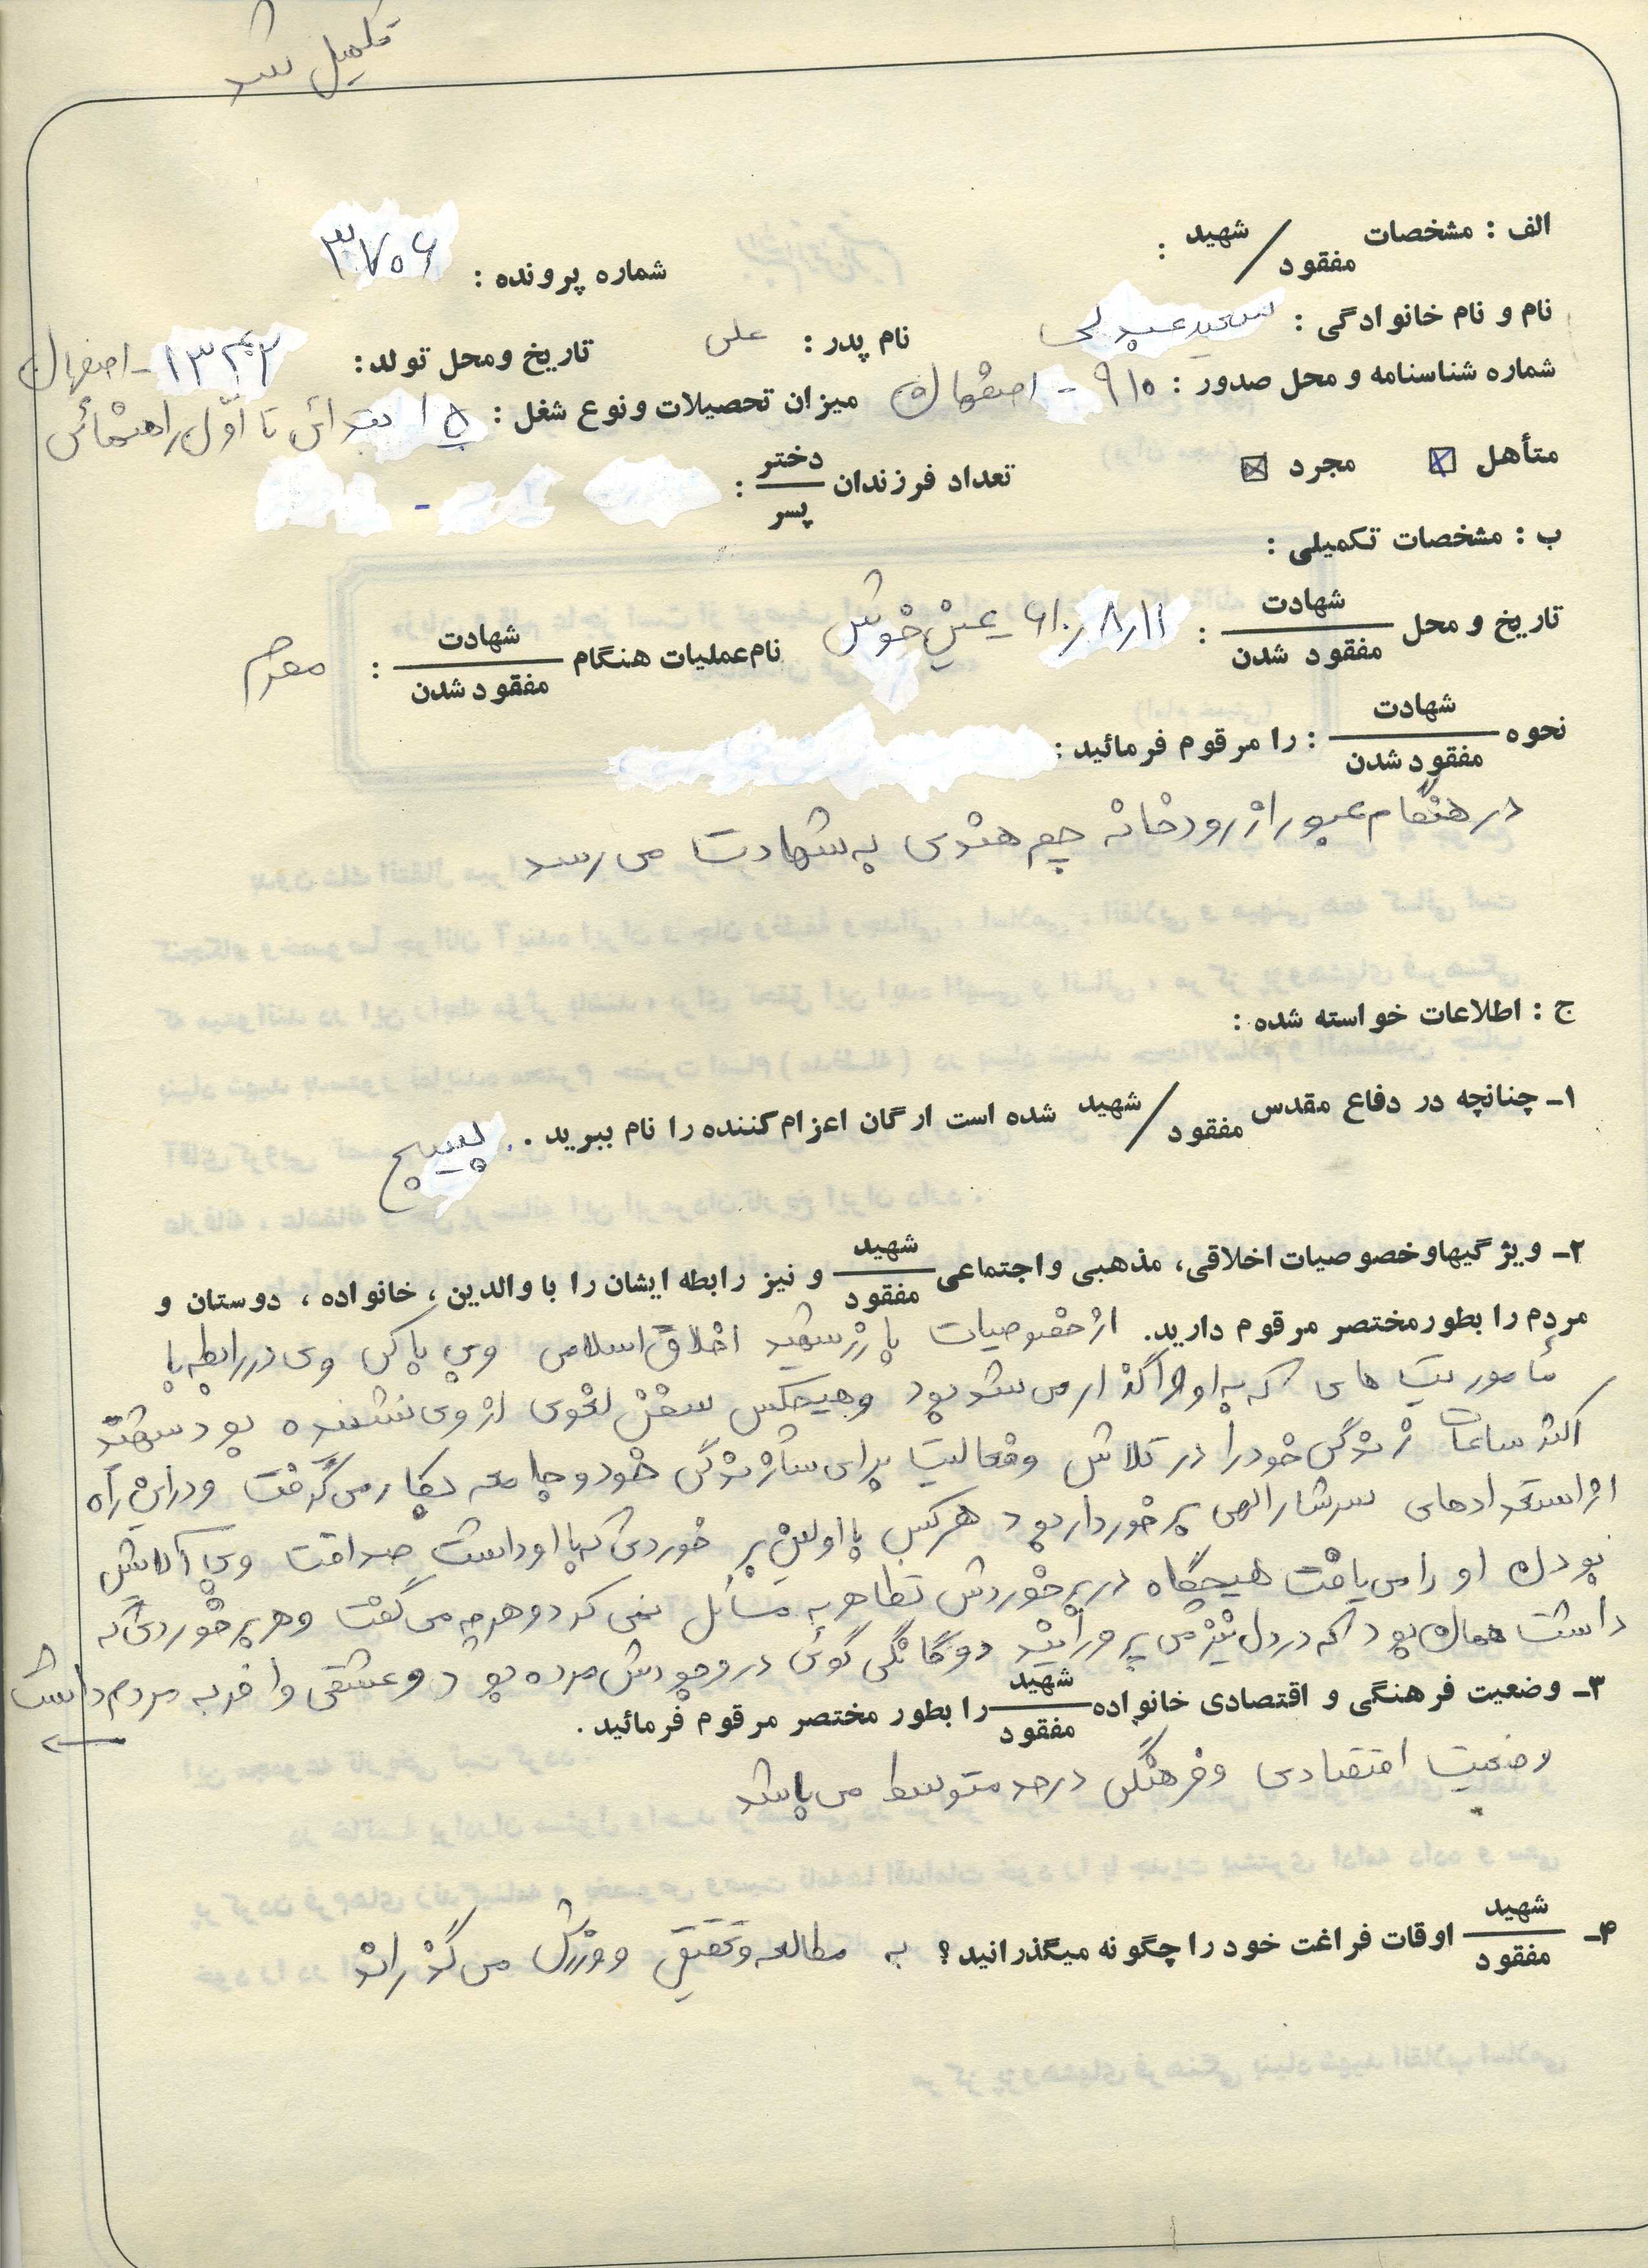 تکمیل شد
الف : مشخصات شهید / مفقود :
شماره پرونده : ۳۷۰۶
نام و نام خانوادگی : سعید عبدلی نام پدر : علی تاریخ ومحل تولد: ۱۳۴۲ - اصفهان
شماره شناسنامه و محل صدور : ۹۱۰ - اصفهان میزان تحصیلات ونوع شغل : ۵ ابتدائی تا اول راهنمائی
متأهل ☒ مجرد ☒ تعداد فرزندان دختر / پسر : -
ب : مشخصات تکمیلی :
تاریخ و محل شهادت / مفقود شدن : ۶۱/۸/۱۱ - عین خوش نام عملیات هنگام شهادت / مفقود شدن : محرم
نحوه شهادت / مفقود شدن : را مرقوم فرمائید :
در هنگام عبور از رودخانه چم هندی به شهادت می رسد
ج : اطلاعات خواسته شده :
۱ـ چنانچه در دفاع مقدس شهید / مفقود شده است ارگان اعزام کننده را نام ببرید . بسیج
۲ـ ویژگیها وخصوصیات اخلاقی، مذهبی و اجتماعی شهید / مفقود و نیز رابطه ایشان را با والدین ، خانواده ، دوستان و
مردم را بطور مختصر مرقوم دارید. از خصوصیات بارز شهید اخلاق اسلامی وی پاکی وی در رابطه با
مأموریت های که به او واگذار می شد بود وهیچکس سخن لغوی از وی نشنیده بود شهید
اکثر ساعات زندگی خود را در تلاش وفعالیت برای سازندگی خود و جامعه بکار می گرفت ودر این راه
از استعدادهای سرشار الهی برخوردار بود هر کس با اولین بر خوردی که با او داشت صداقت وبی آلایش
بودن او را می یافت هیچگاه در برخوردش تظاهر به مسائل نمی کرد و هر چه می گفت وهر برخوردی که
داشت همان بود که در دل نیز می پرورانید دوگانگی گوئی در وجودش مرده بود و عشقی وافر به مردم داشت
←
۳ـ وضعیت فرهنگی و اقتصادی خانواده شهید / مفقود را بطور مختصر مرقوم فرمائید .
وضعیت اقتصادی وفرهنگی در حد متوسط می باشد
۴ـ شهید / مفقود اوقات فراغت خود را چگونه میگذرانید ؟ به مطالعه وتحقیق و ورزش می گذراند